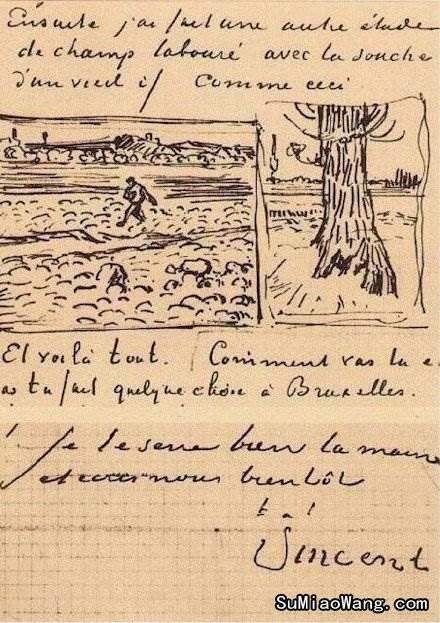 Ensuite j'ai fait une autre étude
de champ labouré avec la souche
d'un vieil if comme ceci
Et voilà tout. Comment vas tu e
as tu fait quelque chose à Bruxelles.
Je te serre bien la main
et écris nous bientôt
t. à t.
Vincent
SuMiaoWang.com